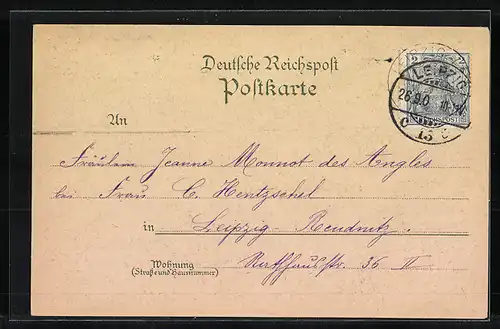 Deutsche Reichspost
Postkarte
LEIPZIG
26.9.0
C 13 C
2
An
Fräulein Jeanne Monnot des Angles
bei Frau C. Hentzschel
in Leipzig-Reudnitz.
Wohnung
(Straße und Hausnummer)
Rathhausstr. 36 II